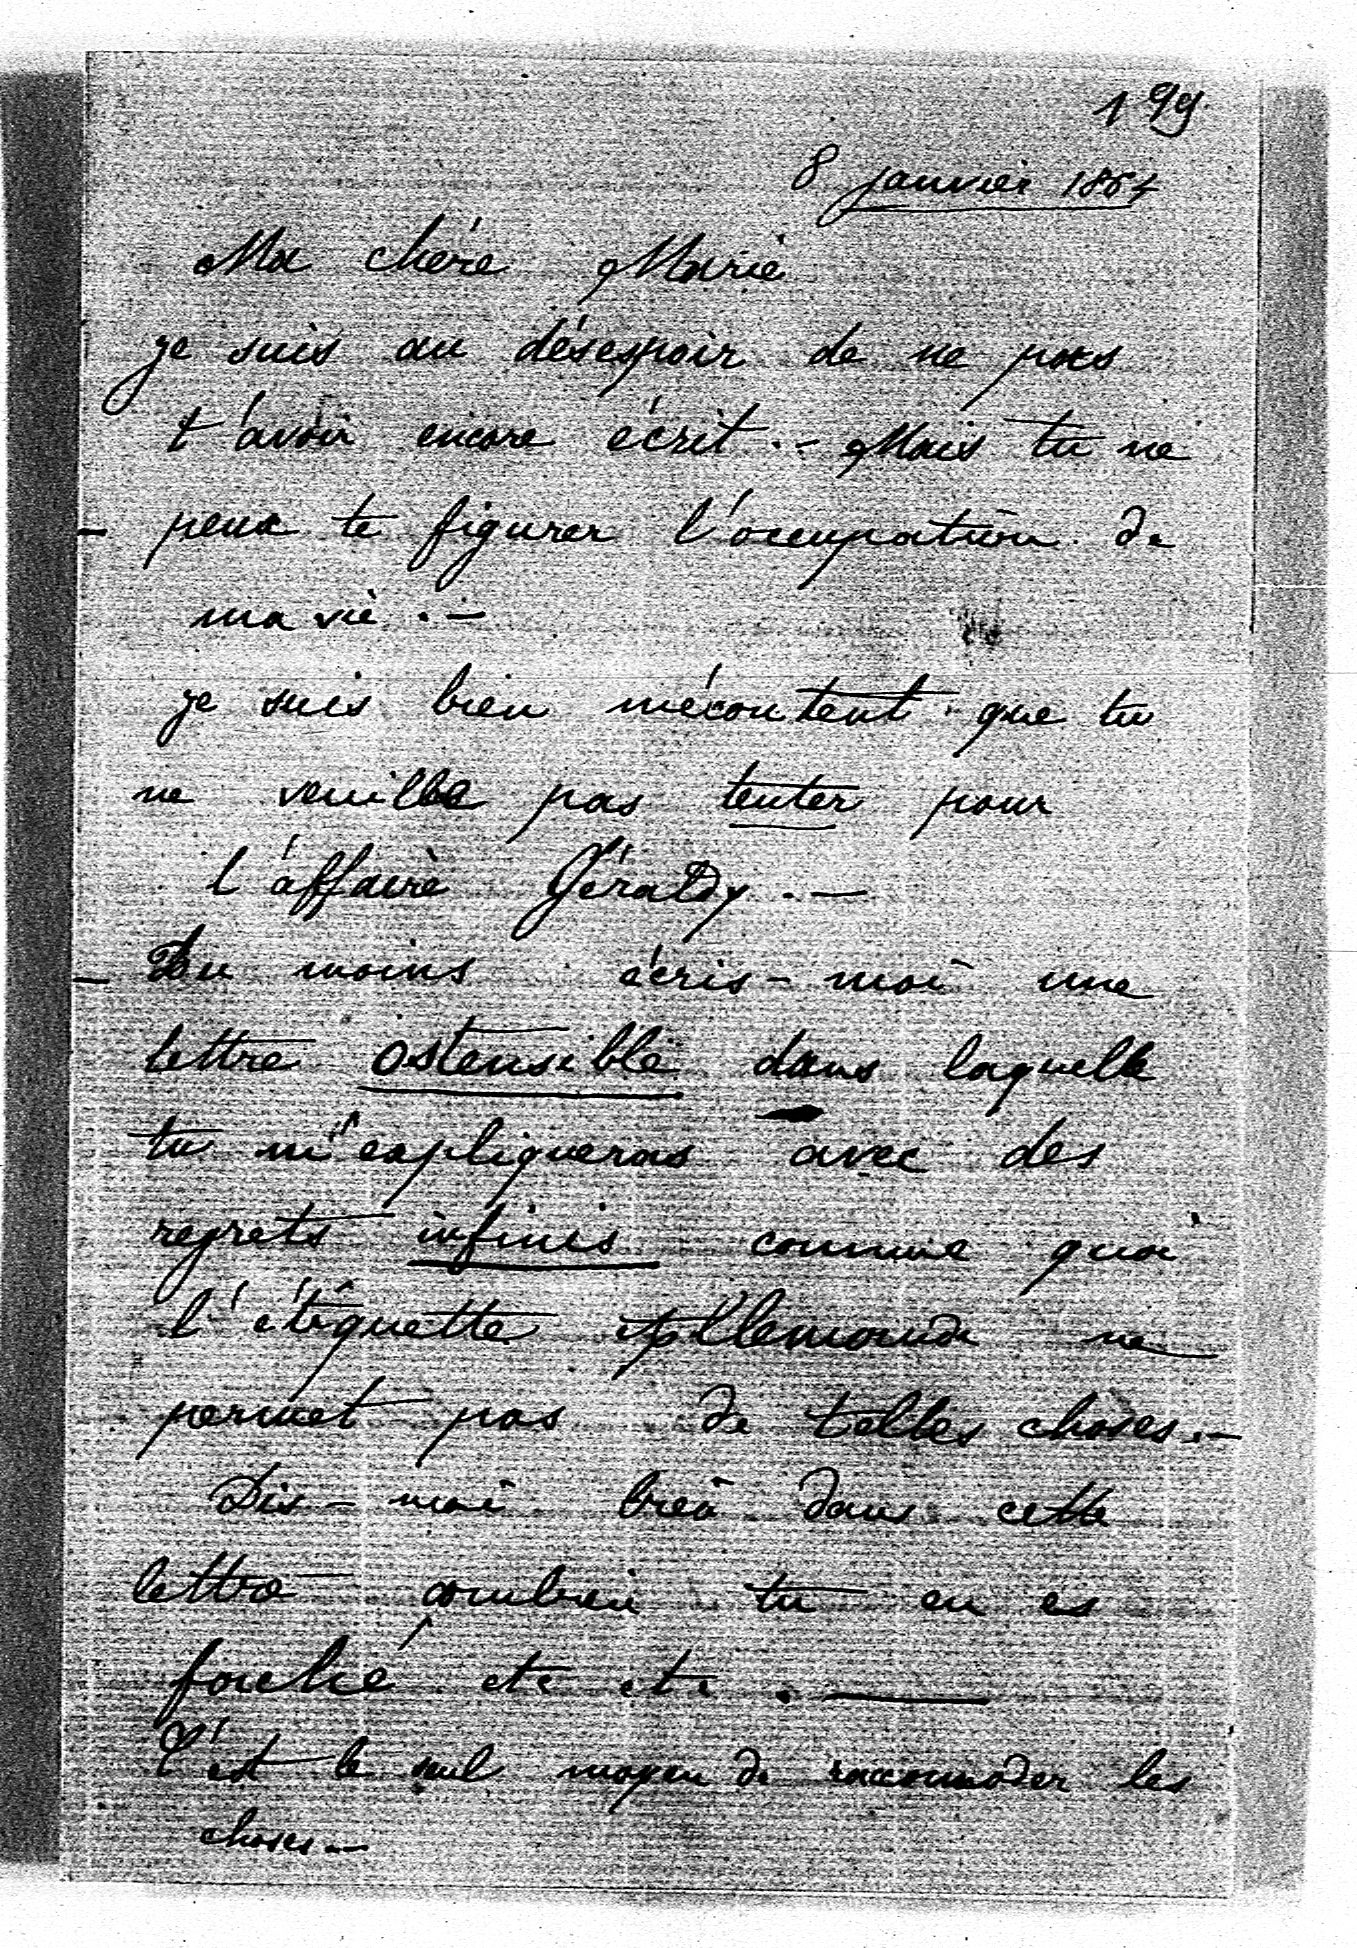 199.
8 janvier 1864
Ma chère Marie
je suis au désespoir de ne pas
t'avoir encore écrit. - Mais tu ne
peux te figurer l'occupation de
ma vie. -
je suis bien mécontent que tu
ne veuille pas tenter pour
l'affaire Géraldy. -
Du moins écris-moi une
lettre ostensible dans laquelle
tu m'expliqueras avec des
regrets infinis comme quoi
l'étiquette Allemande ne
permet pas de telles choses. -
Dis-moi bien dans cette
lettre combien tu en es
fachée etc etc. -
C'est le seul moyen de raccomoder les
choses. -